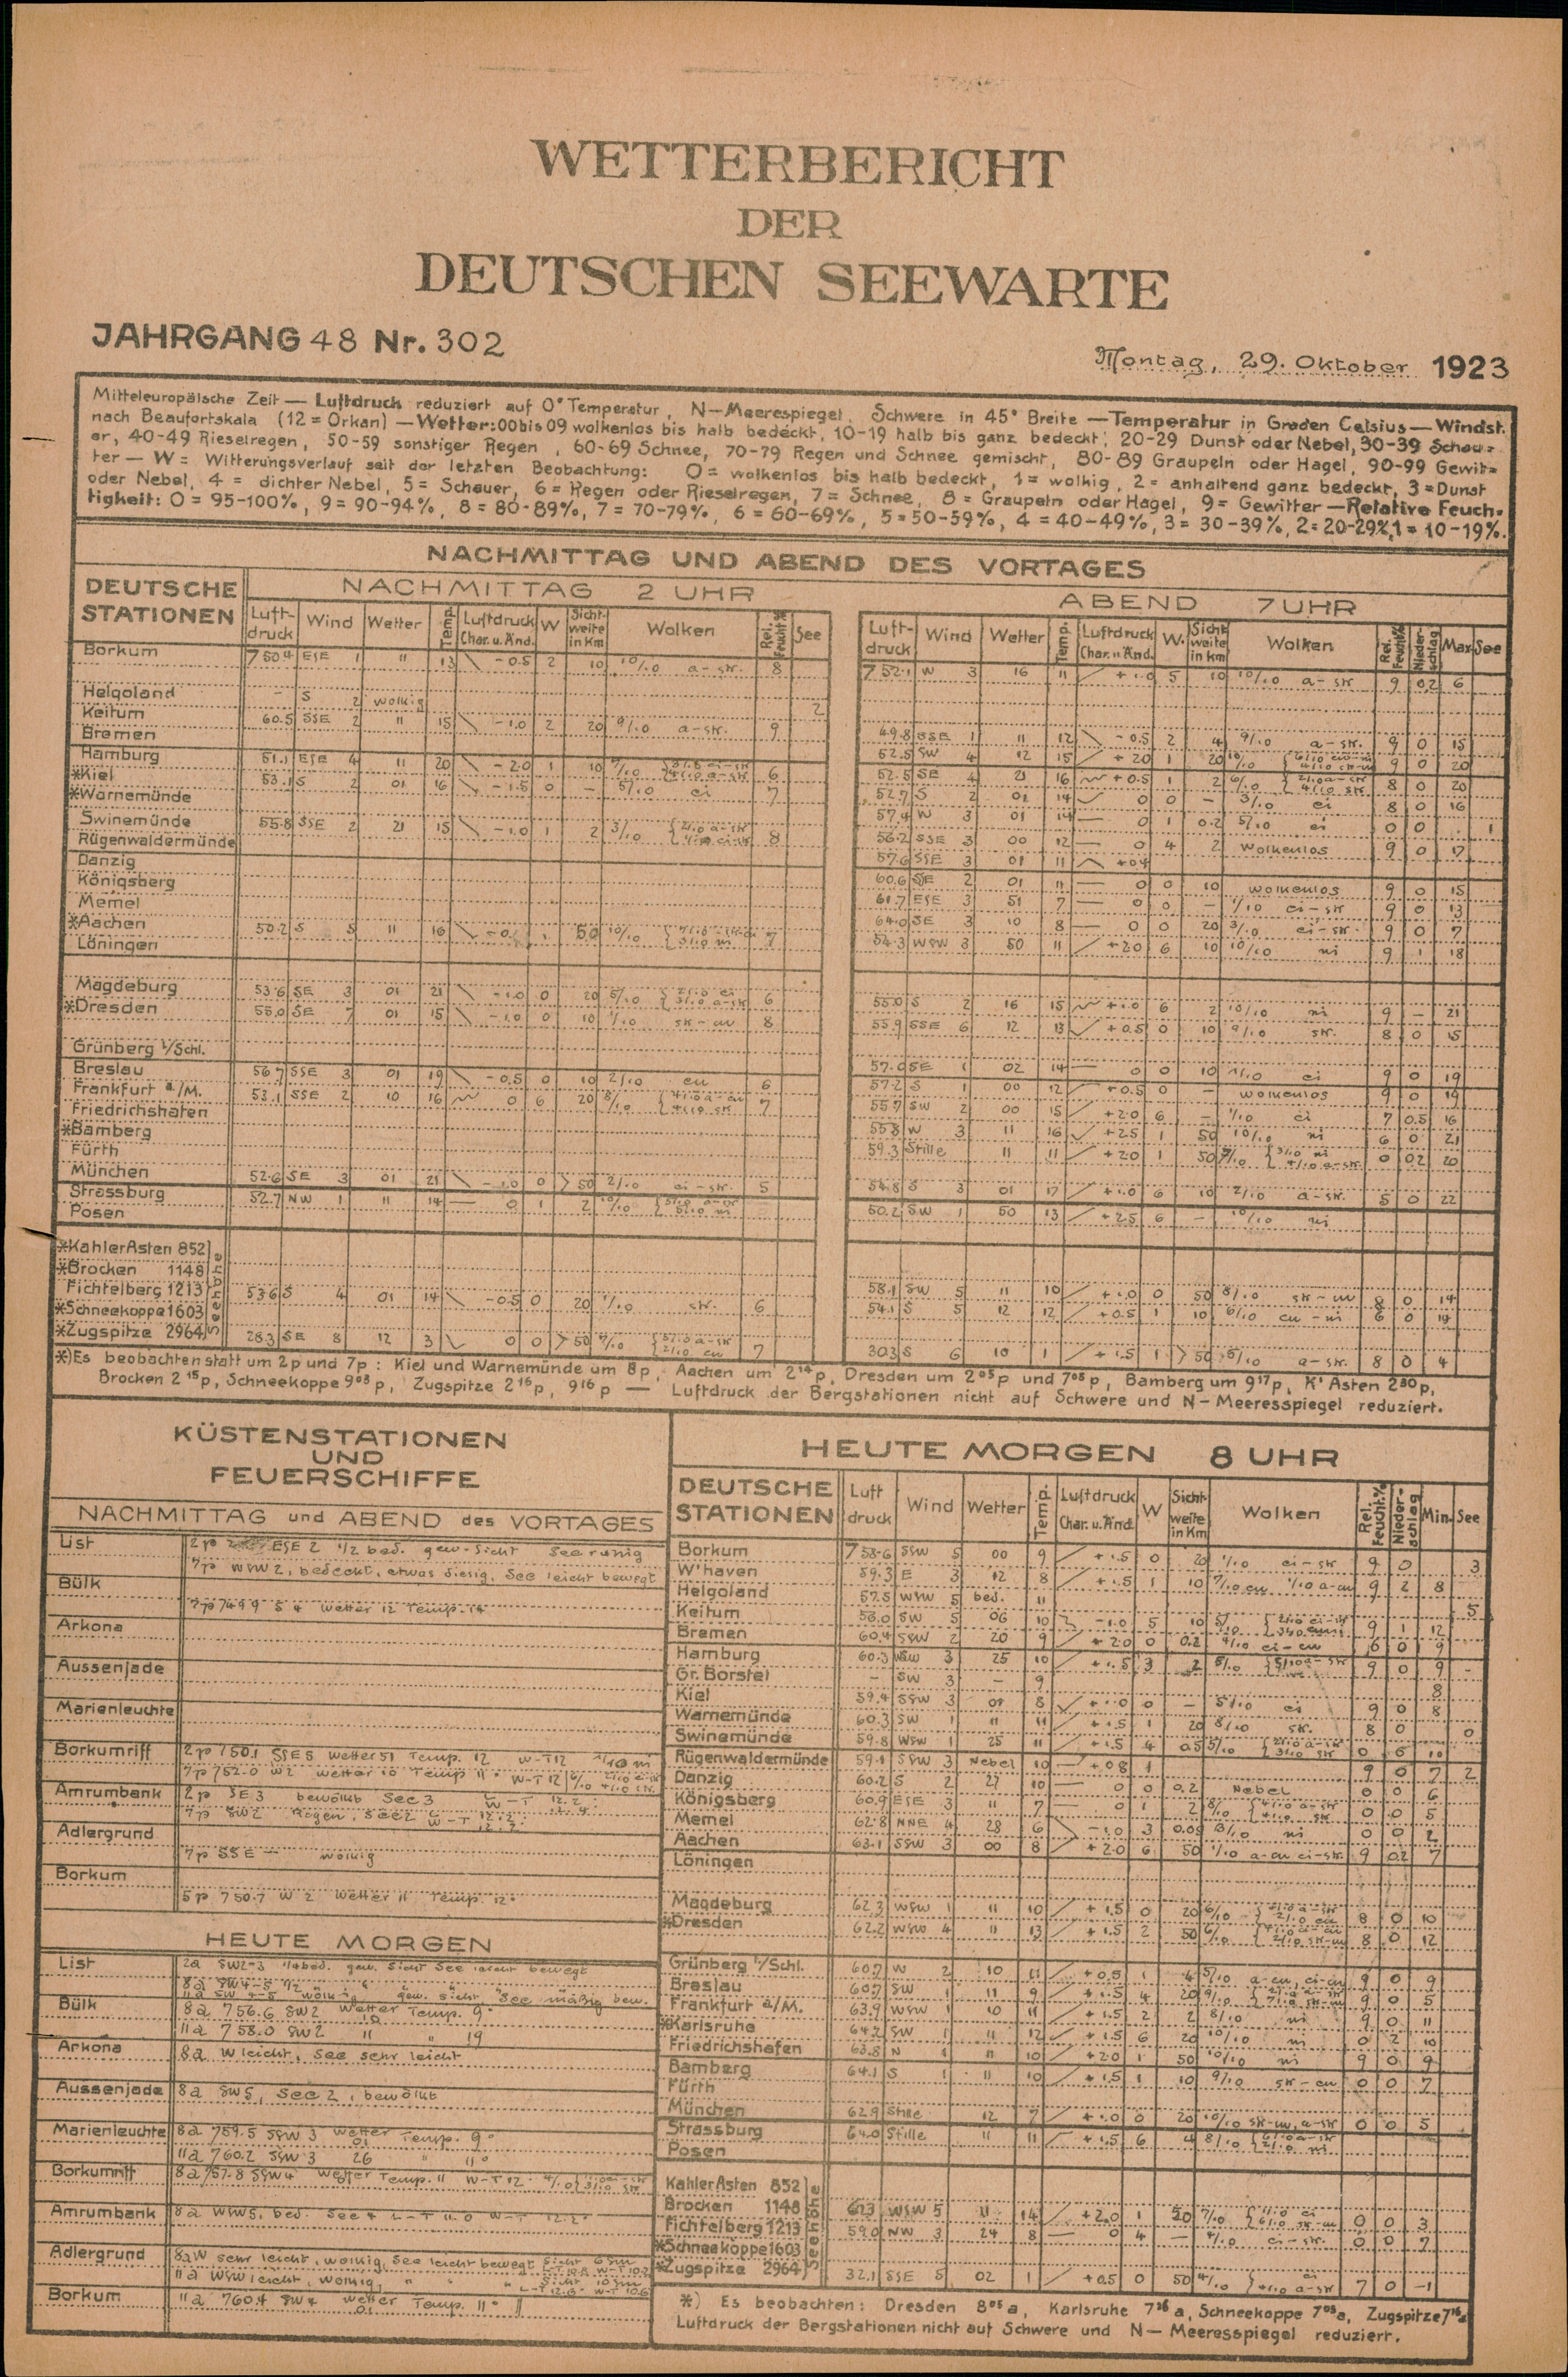 WETTERBERICHT
DER
DEUTSCHEN SEEWARTE
JAHRGANG 48 Nr. 302
Montag, 29. Oktober 1923
Mitteleuropäische Zeit — Luftdruck reduziert auf 0° Temperatur, N—Meerespiegel, Schwere in 45° Breite — Temperatur in Graden Celsius — Windst.
nach Beaufortskala (12 = Orkan) — Wetter: 00 bis 09 wolkenlos bis halb bedeckt, 10-19 halb bis ganz bedeckt, 20-29 Dunst oder Nebel, 30-39 Schau=
er, 40-49 Rieselregen, 50-59 sonstiger Regen, 60-69 Schnee, 70-79 Regen und Schnee gemischt, 80-89 Graupeln oder Hagel, 90-99 Gewit=
ter — W = Witterungsverlauf seit der letzten Beobachtung: 0 = wolkenlos bis halb bedeckt, 1 = wolkig, 2 = anhaltend ganz bedeckt, 3 = Dunst
oder Nebel, 4 = dichter Nebel, 5 = Schauer, 6 = Regen oder Rieselregen, 7 = Schnee, 8 = Graupeln oder Hagel, 9 = Gewitter — Relative Feuch=
tigkeit: 0 = 95-100%, 9 = 90-94%, 8 = 80-89%, 7 = 70-79%, 6 = 60-69%, 5 = 50-59%, 4 = 40-49%, 3 = 30-39%, 2 = 20-29%, 1 = 10-19%.
NACHMITTAG UND ABEND DES VORTAGES
DEUTSCHE STATIONEN
NACHMITTAG 2 UHR
Luft-druck Wind Wetter Temp. Luftdruck Char. u. Änd. W Sicht-weite in Km Wolken Rel. Feucht.% See
ABEND 7 UHR
Luft-druck Wind Wetter Temp. Luftdruck Char. u. Änd. W. Sicht-weite in km Wolken Rel. Feucht.% Nieder-schlag Max See
Borkum 750.4 ESE 1 11 13 -0.5 2 10 10/10 a-str. 8
752.1 W 3 16 11 +1.0 5 10 10/10 a-str 9 0.2 6
Helgoland – S 2 wolkig 2
Keitum 60.5 SSE 2 11 15 -1.0 2 20 9/10 a-str. 9
49.8 SSE 1 11 12 -0.5 2 4 9/10 a-str. 9 0 15
Bremen
52.5 SW 4 12 15 +2.0 1 20 9 0 20
Hamburg 51.1 ESE 4 11 20 -2.0 1 10 6
52.5 SE 4 21 16 +0.5 1 2 8 0 20
*Kiel 53.1 S 2 01 16 -1.5 0 – 5/10 ci 7
52.7 S 2 01 14 0 0 – 3/10 ci 8 0 16
*Warnemünde
57.4 W 3 01 14 0 1 0.2 5/10 ci 0 0 1
Swinemünde 55.8 SSE 2 21 15 -1.0 1 2 3/10 8
56.2 SSE 3 00 12 0 4 2 wolkenlos 9 0 17
Rügenwaldermünde
57.6 SSE 3 01 11
Danzig
60.6 SE 2 01 11 0 0 10 wolkenlos 9 0 15
Königsberg
61.7 ESE 3 51 7 0 0 – 1/10 ci-str 9 0 13
Memel
64.0 SE 3 10 8 0 0 20 3/10 ci-str. 9 0 7
*Aachen 50.2 S 5 11 16 50 10/10 7
54.3 WSW 3 50 11 +2.0 6 10 10/10 ni 9 1 18
Löningen
Magdeburg 53.6 SE 3 01 21 -1.0 0 20 5/10 6
55.0 S 2 16 15 +1.0 6 2 10/10 ni 9 – 21
*Dresden 55.0 SE 7 01 15 -1.0 0 10 1/10 str-cu 8
55.9 SSE 6 12 13 +0.5 0 10 9/10 str. 8 0 15
Grünberg i/Schl.
57.0 SE 1 02 14 0 0 10 1/10 ci 9 0 19
Breslau 56.7 SSE 3 01 19 -0.5 0 10 2/10 cu 6
57.2 S 1 00 12 +0.5 0 – wolkenlos 9 0 19
Frankfurt a./M. 53.1 SSE 2 10 16 0 6 20 8/10 7
55.7 SW 2 00 15 +2.0 6 – 1/10 ci 7 0.5 16
Friedrichshafen
55.8 W 3 11 16 +2.5 1 50 10/10 ni 6 0 21
*Bamberg
59.3 Stille 11 11 +2.0 1 50 0 0.2 20
Fürth
München 52.6 SE 3 01 21 -1.0 0 >50 2/10 ci-str. 5
54.8 S 3 01 17 +1.0 6 10 2/10 a-str. 5 0 22
Strassburg 52.7 NW 1 11 14 0 1 2 10/10
50.2 SW 1 50 13 +2.5 6 – 10/10 ni
Posen
Seehöhe
*Kahler Asten 852
*Brocken 1148
58.1 SW 5 11 10 +1.0 0 50 8/10 str-cu 8 0 14
Fichtelberg 1213 53.6 S 4 01 14 -0.5 0 20 1/10 str. 6
54.1 S 5 12 12 +0.5 1 10 6/10 cu-ni 6 0 14
*Schneekoppe 1603
*Zugspitze 2964 28.3 SE 8 12 3 0 0 >50 7/10 7
30.3 S 6 10 1 +1.5 1 >50 5/10 a-str. 8 0 4
*) Es beobachten statt um 2p und 7p: Kiel und Warnemünde um 8p, Aachen um 2¹⁴p, Dresden um 2⁰⁵p und 7⁰⁵p, Bamberg um 9¹⁷p, K' Asten 2³⁰p,
Brocken 2¹⁵p, Schneekoppe 9⁰³p, Zugspitze 2¹⁶p, 9¹⁶p — Luftdruck der Bergstationen nicht auf Schwere und N—Meeresspiegel reduziert.
KÜSTENSTATIONEN
UND
FEUERSCHIFFE
NACHMITTAG und ABEND des VORTAGES
List 2p ESE 2 1/2 bed. gew. Sicht See ruhig
7p WSW 2, bedeckt, etwas diesig, See leicht bewegt
Bülk
7p 749.9 S 4 Wetter 12 Temp. 14
Arkona
Aussenjade
Marienleuchte
Borkumriff 2p 750.1 SSE 5 Wetter 51 Temp. 12 W-T 12
7p 752.0 W 2 Wetter 10 Temp 11° W-T 12
Amrumbank 2p SE 3 bewölkt See 3
7p SW 2 Regen, See 2
Adlergrund
7p SSE – wolkig
Borkum
5p 750.7 W 2 Wetter 11 Temp. 12°
HEUTE MORGEN
List 2a SW 2-3 1/4 bed. gew. Sicht See leicht bewegt
8a SW 4-5 1/2
11a SW 4-5 wolkig gew. Sicht See mäßig bew.
Bülk 8a 756.6 SW 2 Wetter 10 Temp. 9°
11a 758.0 SW 2 " " 19
Arkona 8a W leicht, See sehr leicht
Aussenjade 8a SW 5, See 2, bewölkt
Marienleuchte 8a 759.5 SSW 3 Wetter 01 Temp. 9°
11a 760.2 SSW 3 26 " 11°
Borkumriff 8a 757.8 SSW 4 Wetter Temp. 11 W-T 12
Amrumbank 8a WSW 5, bed. See 4 L-T 11.0 W-T 12.2°
Adlergrund 8a W sehr leicht, wolkig, See leicht bewegt
11a WSW leicht, wolkig,
Borkum 11a 760.4 SW 4 Wetter 01 Temp. 11°
HEUTE MORGEN 8 UHR
DEUTSCHE STATIONEN Luft druck Wind Wetter Temp. Luftdruck Char. u. Änd. W Sicht-weite in Km Wolken Rel. Feucht.% Nieder-schlag Min. See
Borkum 758.6 SSW 5 00 9 +1.5 0 20 1/10 ci-str 9 0 3
W'haven 59.3 E 3 12 8 +1.5 1 10 7/10 cu 1/10 a-cu 9 2 8
Helgoland 57.5 WSW 5 bed. 11 5
Keitum 56.0 SW 5 06 10 -1.0 5 10 9 1 12
Bremen 60.4 SSW 2 20 9 +2.0 0 0.2 4/10 ci-cu 6 0 9
Hamburg 60.3 WSW 3 25 10 +1.5 3 2 9 0 9 –
Gr. Borstel – SW 3 – 9 8
Kiel 59.4 SSW 3 01 8 +1.0 0 – 5/10 ci 9 0 8
Warnemünde 60.3 SW 1 11 11 +1.5 1 20 8/10 str. 8 0 0
Swinemünde 59.8 WSW 1 25 11 +1.5 4 0.5 5/10 0 0 10
Rügenwaldermünde 59.1 SSW 3 Nebel 10 +0.8 1 9 0 7 2
Danzig 60.2 S 2 27 10 0 0 0.2 Nebel 0 0 6
Königsberg 60.9 ESE 3 11 7 0 1 2 8/10 0 0 5
Memel 62.8 NNE 4 28 6 -1.0 3 0.05 ni 0 0 2
Aachen 63.1 SSW 3 00 8 +2.0 6 50 1/10 a-cu ci-str. 9 0.2 7
Löningen
Magdeburg 62.3 WSW 1 11 10 +1.5 0 20 6/10 8 0 10
*Dresden 62.2 WSW 4 11 13 +1.5 2 50 6/10 8 0 12
Grünberg i/Schl. 60.7 W 2 10 11 +0.5 1 4 5/10 a-cu, ci-cu 9 0 9
Breslau 60.7 SW 1 11 9 +1.5 4 20 9/10 9 0 5
Frankfurt a/M. 63.9 WSW 1 10 11 +1.5 2 2 8/10 ni 9 0 11
*Karlsruhe 64.2 SW 1 11 12 +1.5 6 20 10/10 ni 0 2 10
Friedrichshafen 63.8 N 1 11 10 +2.0 1 50 10/10 ni 9 0 9
Bamberg 64.1 S 1 11 10 +1.5 1 10 9/10 str-cu 0 0 7
Fürth
München 62.9 Stille 12 7 +1.0 0 20 10/10 str-cu, a-str 0 0 5
Strassburg 64.0 Stille 11 11 +1.5 6 4 8/10
Posen
Seehöhe
Kahler Asten 852
Brocken 1148 WSW 5 11 +2.0 1 50 7/10 0 0 3
Fichtelberg 1213 59.0 NW 3 24 8 0 4 – 4/10 ci-str. 0 0 7
*Schneekoppe 1603
*Zugspitze 2964 32.1 SSE 5 02 1 +0.5 0 50 4/10 7 0 -1
*) Es beobachten: Dresden 8⁰⁵a, Karlsruhe 7³⁶a, Schneekoppe 7⁰³a, Zugspitze 7¹⁶a
Luftdruck der Bergstationen nicht auf Schwere und N—Meeresspiegel reduziert.